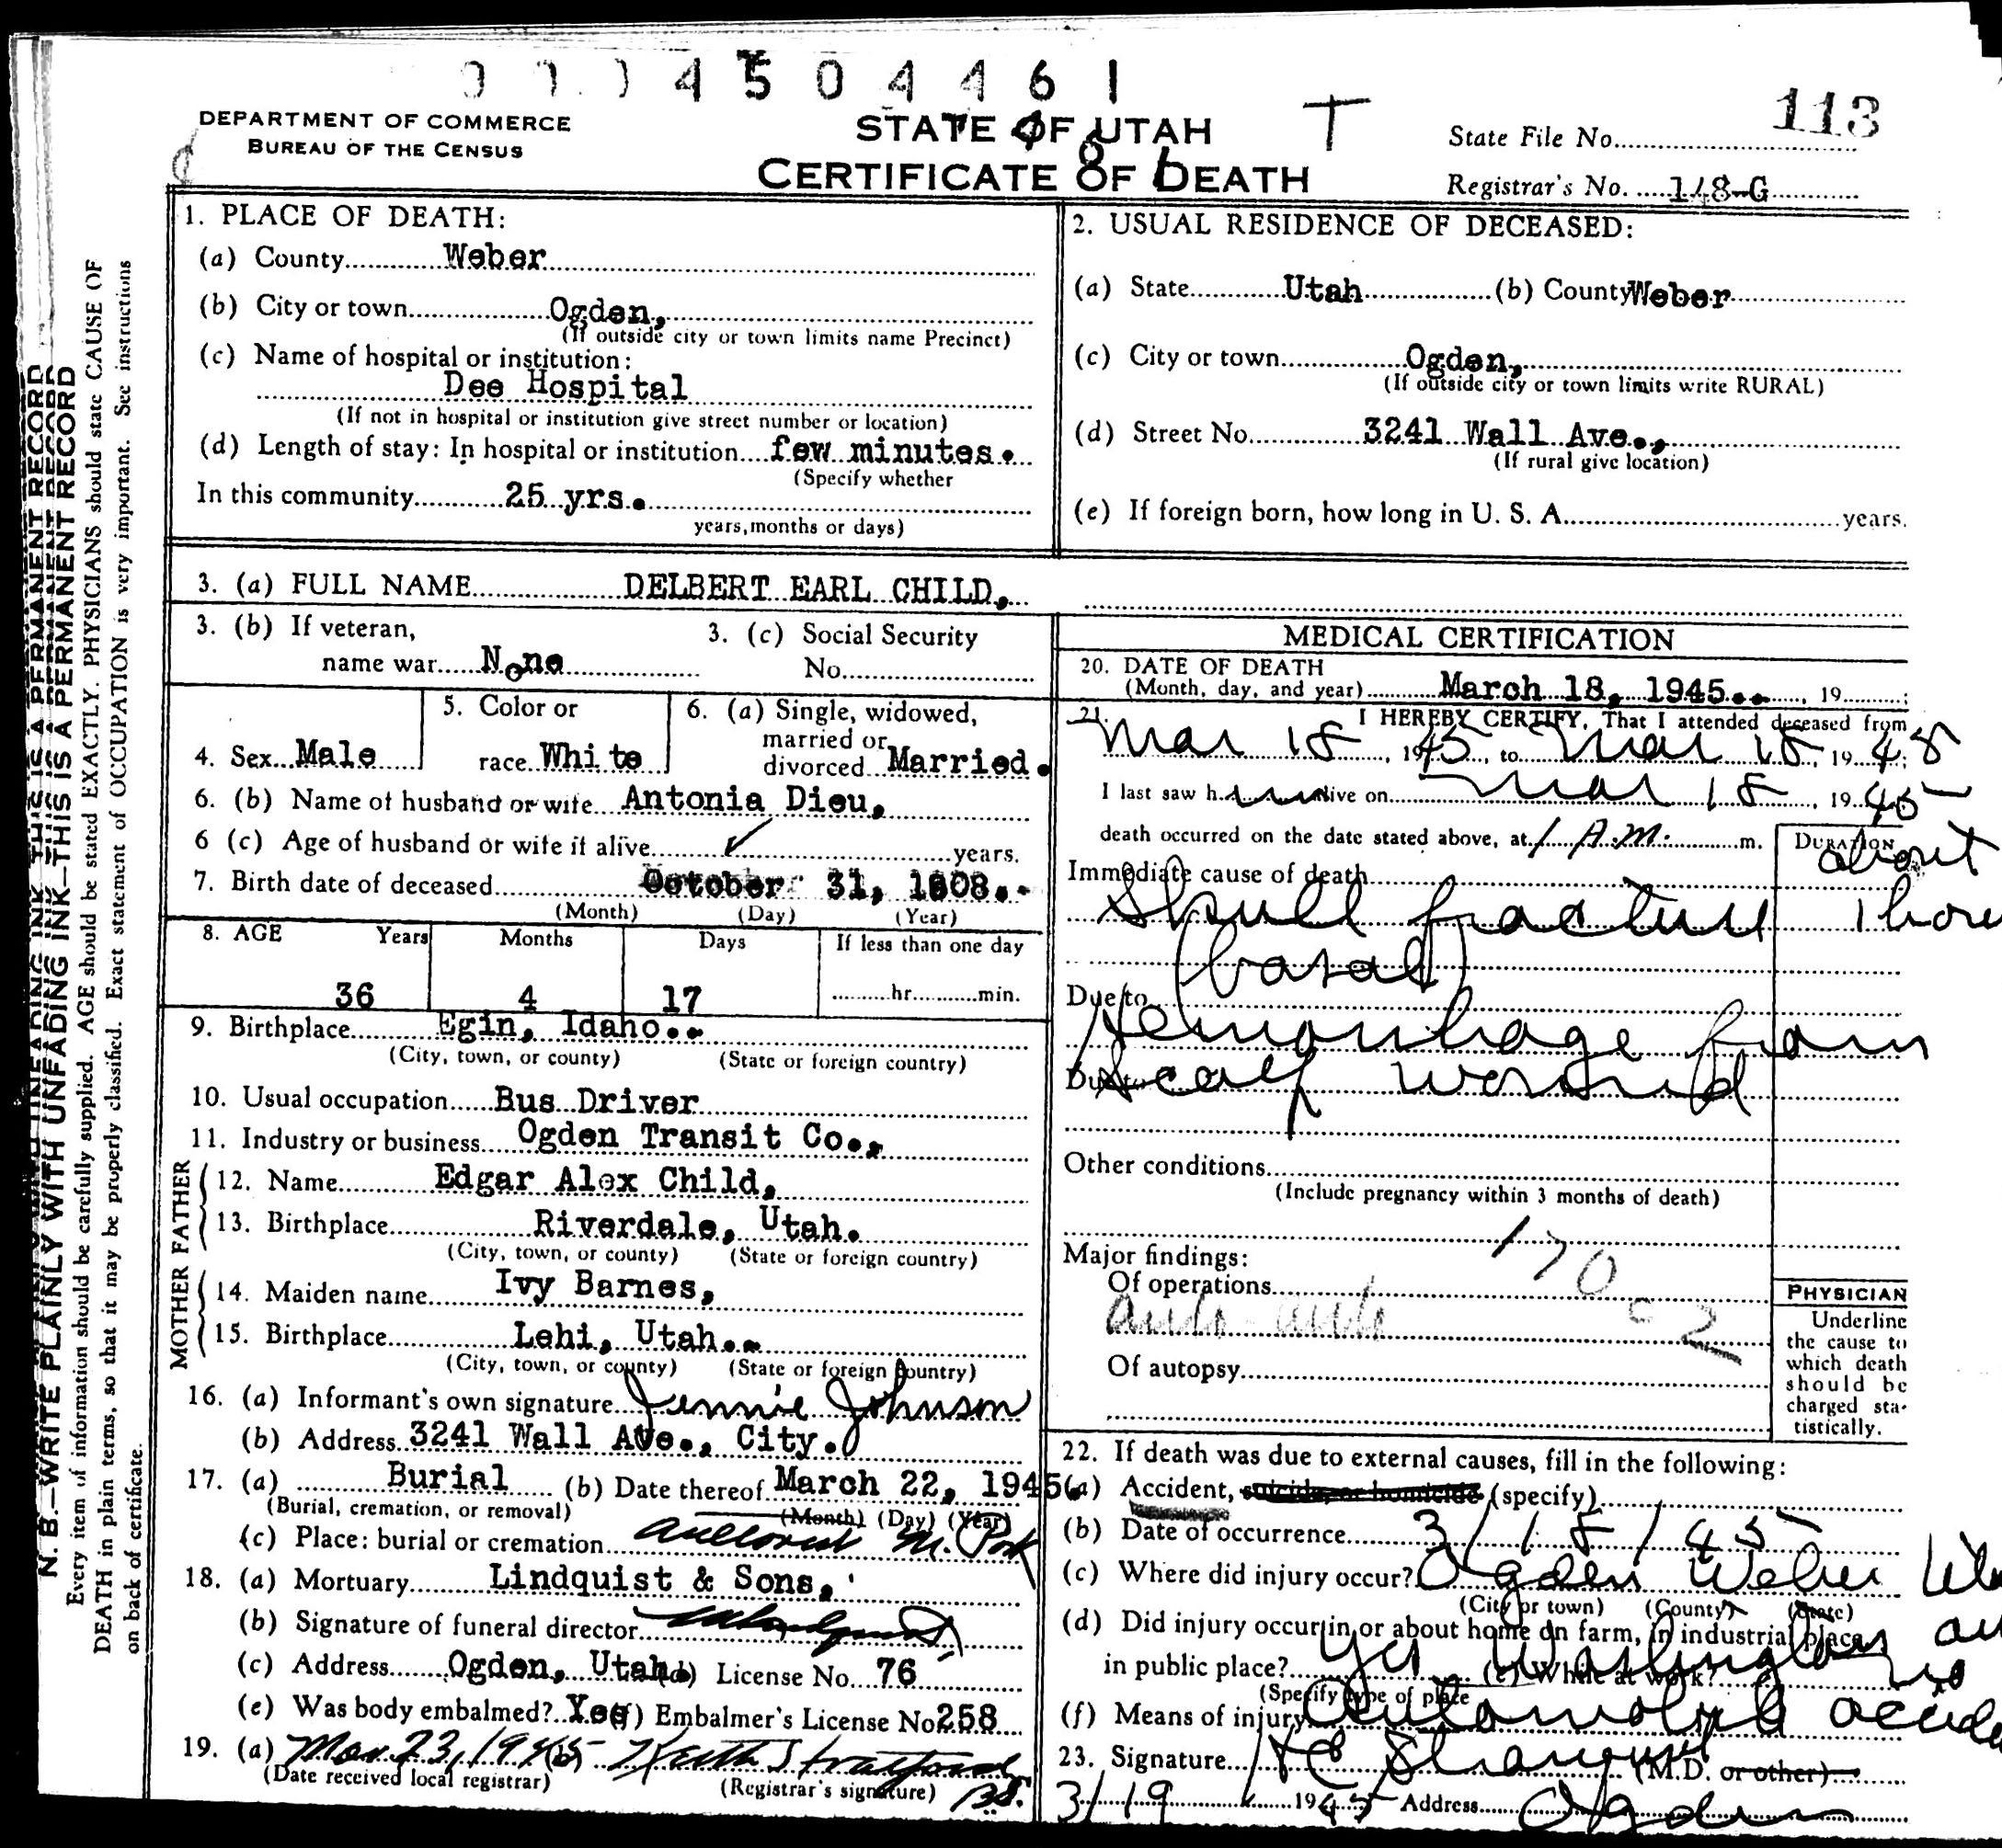 4 5 0 4 4 6 1
DEPARTMENT OF COMMERCE
BUREAU OF THE CENSUS
STATE OF UTAH
CERTIFICATE OF DEATH
T
113
State File No.
Registrar's No. 148-G
1. PLACE OF DEATH:
(a) County Weber
(b) City or town Ogden,
(If outside city or town limits name Precinct)
(c) Name of hospital or institution:
Dee Hospital
(If not in hospital or institution give street number or location)
(d) Length of stay: In hospital or institution few minutes.
(Specify whether
In this community 25 yrs.
years, months or days)
2. USUAL RESIDENCE OF DECEASED:
(a) State Utah (b) County Weber
(c) City or town Ogden,
(If outside city or town limits write RURAL)
(d) Street No. 3241 Wall Ave.,
(If rural give location)
(e) If foreign born, how long in U. S. A. years.
3. (a) FULL NAME DELBERT EARL CHILD,
3. (b) If veteran,
name war None
3. (c) Social Security
No.
4. Sex Male
5. Color or
race White
6. (a) Single, widowed,
married or
divorced Married.
6. (b) Name of husband or wife Antonia Dieu,
6 (c) Age of husband or wife if alive years.
7. Birth date of deceased October 31, 1908.
(Month) (Day) (Year)
8. AGE Years Months Days If less than one day
36 4 17 hr. min.
9. Birthplace Egin, Idaho.
(City, town, or county) (State or foreign country)
10. Usual occupation Bus Driver
11. Industry or business Ogden Transit Co.,
FATHER
12. Name Edgar Alex Child,
13. Birthplace Riverdale, Utah.
(City, town, or county) (State or foreign country)
MOTHER
14. Maiden name Ivy Barnes,
15. Birthplace Lehi, Utah.
(City, town, or county) (State or foreign country)
16. (a) Informant's own signature Jennie Johnson
(b) Address 3241 Wall Ave., City.
17. (a) Burial (b) Date thereof March 22, 1945
(Burial, cremation, or removal) (Month) (Day) (Year)
(c) Place: burial or cremation
18. (a) Mortuary Lindquist & Sons,
(b) Signature of funeral director
(c) Address Ogden, Utah. (d) License No. 76
(e) Was body embalmed? Yes (f) Embalmer's License No. 258
19. (a) Mar 23, 1945 (b)
(Date received local registrar) (Registrar's signature)
MEDICAL CERTIFICATION
20. DATE OF DEATH
(Month, day, and year) March 18, 1945. , 19 ;
21. I HEREBY CERTIFY, That I attended deceased from
Mar 18, 1945, to Mar 18, 1945;
I last saw him alive on Mar 18, 1945
death occurred on the date stated above, at 1 A.M. m.
DURATION
about
1 hour
Immediate cause of death
Skull fracture
(basal)
Due to
Hemorrhage from
Due to
Scalp wound
Other conditions
(Include pregnancy within 3 months of death)
Major findings:
Of operations
170
auto auto
c-2
Of autopsy
PHYSICIAN
Underline
the cause to
which death
should be
charged sta-
tistically.
22. If death was due to external causes, fill in the following:
(a) Accident, suicide, or homicide (specify)
(b) Date of occurrence 3/18/45
(c) Where did injury occur? Ogden Weber
(City or town) (County) (State)
(d) Did injury occur in or about home on farm, in industrial place,
in public place? yes Washington (e) While at work? no
(Specify type of place
(f) Means of injury Automobile accide
23. Signature (M.D. or other)
3/19 1945 Address Ogden
N. B.—WRITE PLAINLY WITH UNFADING INK—THIS IS A PERMANENT RECORD
Every item of information should be carefully supplied. AGE should be stated EXACTLY. PHYSICIANS should state CAUSE OF
DEATH in plain terms, so that it may be properly classified. Exact statement of OCCUPATION is very important. See instructions
on back of certificate.